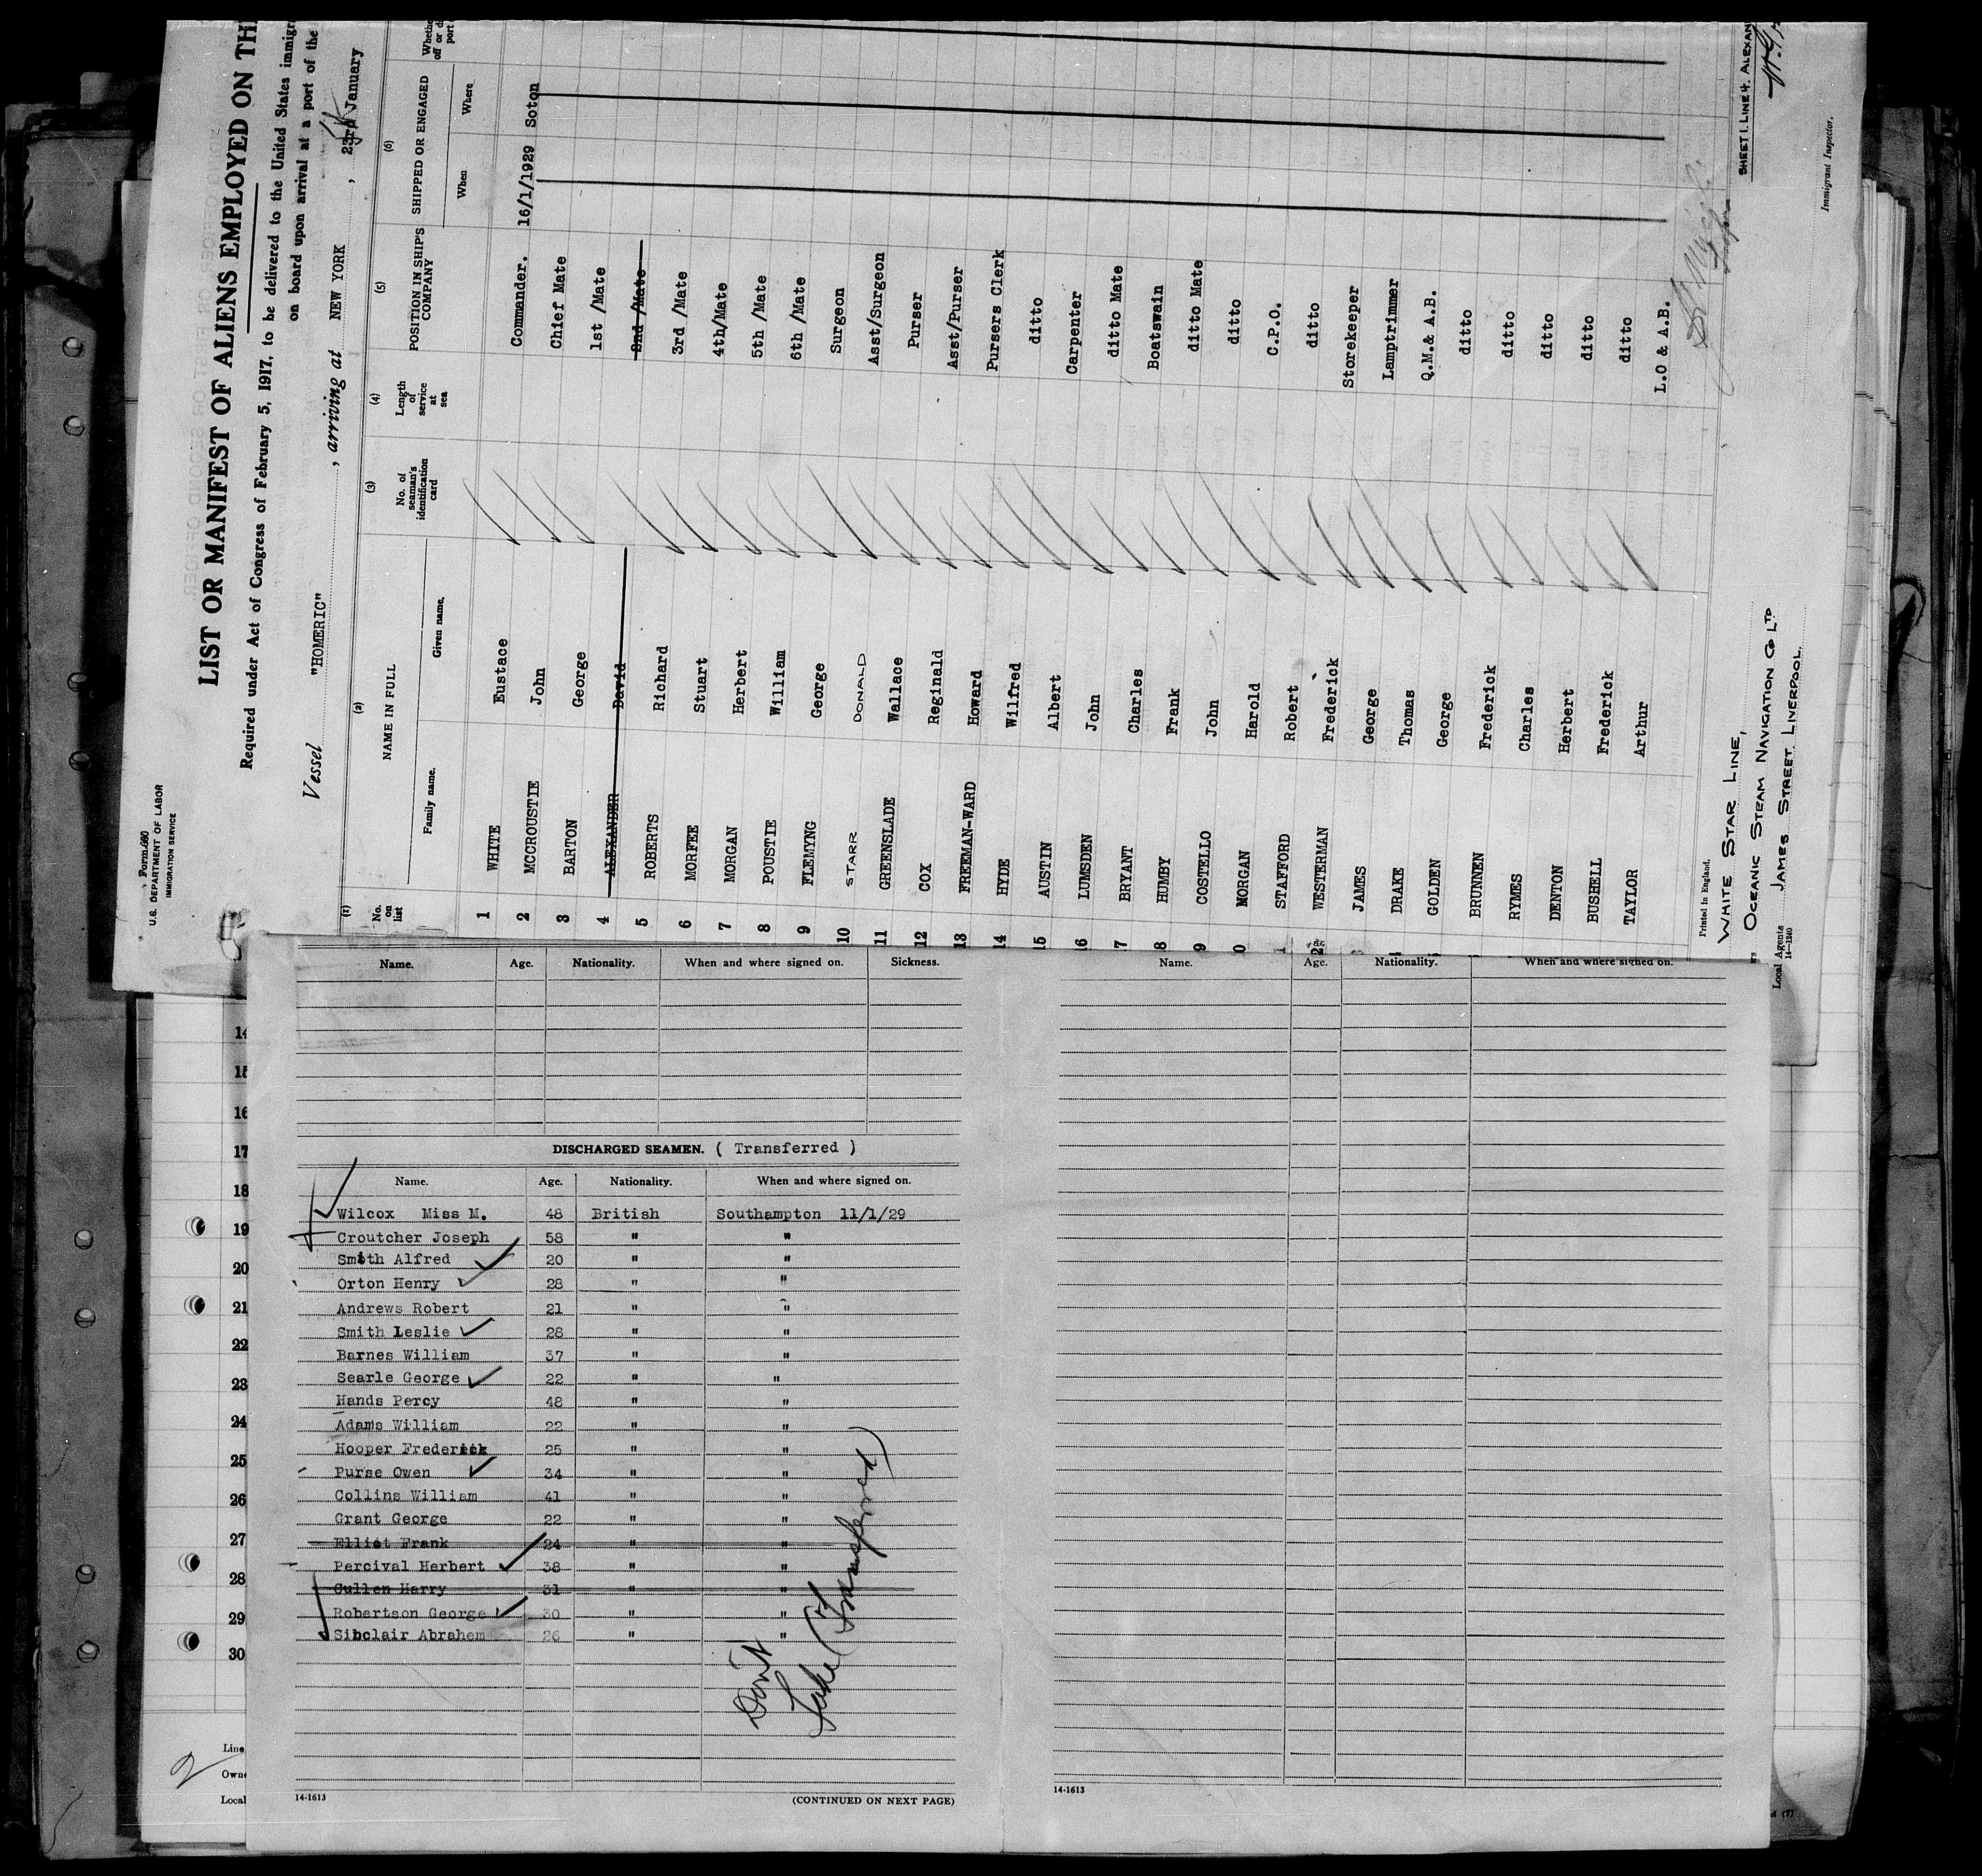 Form 680
U.S. DEPARTMENT OF LABOR
IMMIGRATION SERVICE
LIST OR MANIFEST OF ALIENS EMPLOYED ON TH
Required under Act of Congress of February 5, 1917, to be delivered to the United States immigr
on board upon arrival at a port of the
Vessel "HOMERIC", arriving at NEW YORK, 23rd January
(1) (2) (3) (4) (5) (6)
No. on list NAME IN FULL No. of seaman's identification card Length of service at sea POSITION IN SHIP'S COMPANY SHIPPED OR ENGAGED Whethe off or di port
Family name. Given name. When Where
1 WHITE Eustace Commander. 16/1/1929 Soton
2 MCCROUSTIE John Chief Mate
3 BARTON George 1st /Mate
4 ALEXANDER David 2nd /Mate
5 ROBERTS Richard 3rd /Mate
6 MORFEE Stuart 4th/Mate
7 MORGAN Herbert 5th /Mate
8 POUSTIE William 6th /Mate
9 FLEMYNG George Surgeon
10 STARR DONALD Asst/Surgeon
11 GREENSLADE Wallace Purser
12 COX Reginald Asst/Purser
13 FREEMAN-WARD Howard Pursers Clerk
14 HYDE Wilfred ditto
15 AUSTIN Albert Carpenter
16 LUMSDEN John ditto Mate
7 BRYANT Charles Boatswain
8 HUMBY Frank ditto Mate
9 COSTELLO John ditto
0 MORGAN Harold C.P.O.
1 STAFFORD Robert ditto
2 WESTERMAN Frederick Storekeeper
JAMES George Lamptrimmer
DRAKE Thomas Q.M.& A.B.
GOLDEN George ditto
BRUNNEN Frederick ditto
RYMES Charles ditto
DENTON Herbert ditto
BUSHELL Frederick ditto
TAYLOR Arthur L.O & A.B.
Printed in England.
WHITE STAR LINE,
OCEANIC STEAM NAVIGATION Co LTD
Local Agents JAMES STREET, LIVERPOOL.
14-1240
SHEET 1. LINE 4. ALEXAN
Immigrant Inspector.
Name. Age. Nationality. When and where signed on. Sickness.
Name. Age. Nationality. When and where signed on.
DISCHARGED SEAMEN. ( Transferred )
Name. Age. Nationality. When and where signed on.
Wilcox Miss M. 48 British Southampton 11/1/29
Croutcher Joseph 58 " "
Smith Alfred 20 " "
Orton Henry 28 " "
Andrews Robert 21 " "
Smith Leslie 28 " "
Barnes William 37 " "
Searle George 22 " "
Hands Percy 48 " "
Adams William 22 " "
Hooper Frederick 25 " "
Purse Owen 34 " "
Collins William 41 " "
Grant George 22 " "
Elliot Frank 24 " "
Percival Herbert 38 " "
Cullen Harry 31 " "
Robertson George 30 " "
Sinclair Abrahem 26 " "
Don't
take (Transferred)
14-1613
(CONTINUED ON NEXT PAGE)
14-1613
14
15
16
17
18
19
20
21
22
23
24
25
26
27
28
29
30
Line
Owne
Local
2